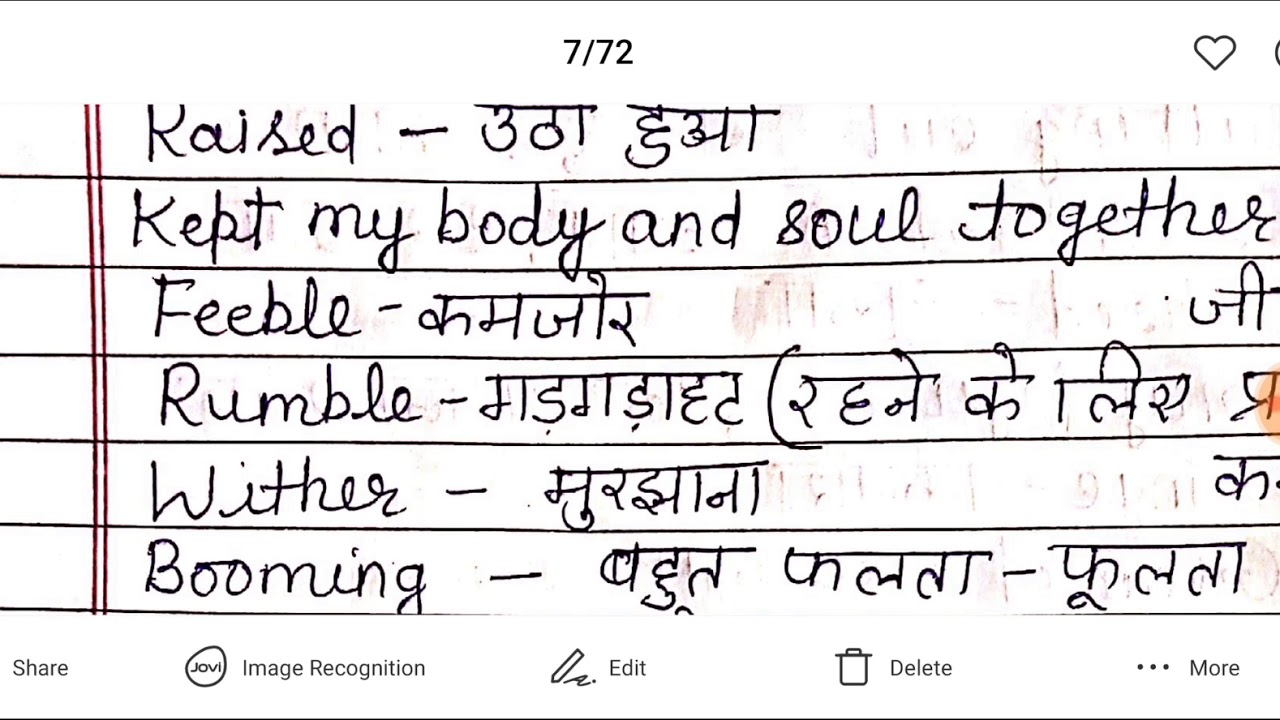 7/72
Raised - उठा हुआ
Kept my body and soul together
Feeble - कमजोर जी
Rumble - गड़गड़ाहट (रहने के लिए प्र
Wither - मुरझाना
Booming - बहुत फलता - फूलता
Share Jovi Image Recognition Edit Delete More